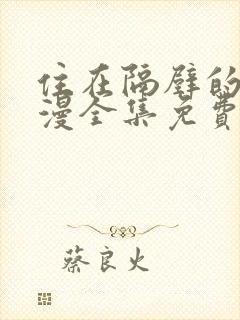 住在隔壁的
漫全集免费
蔡良火